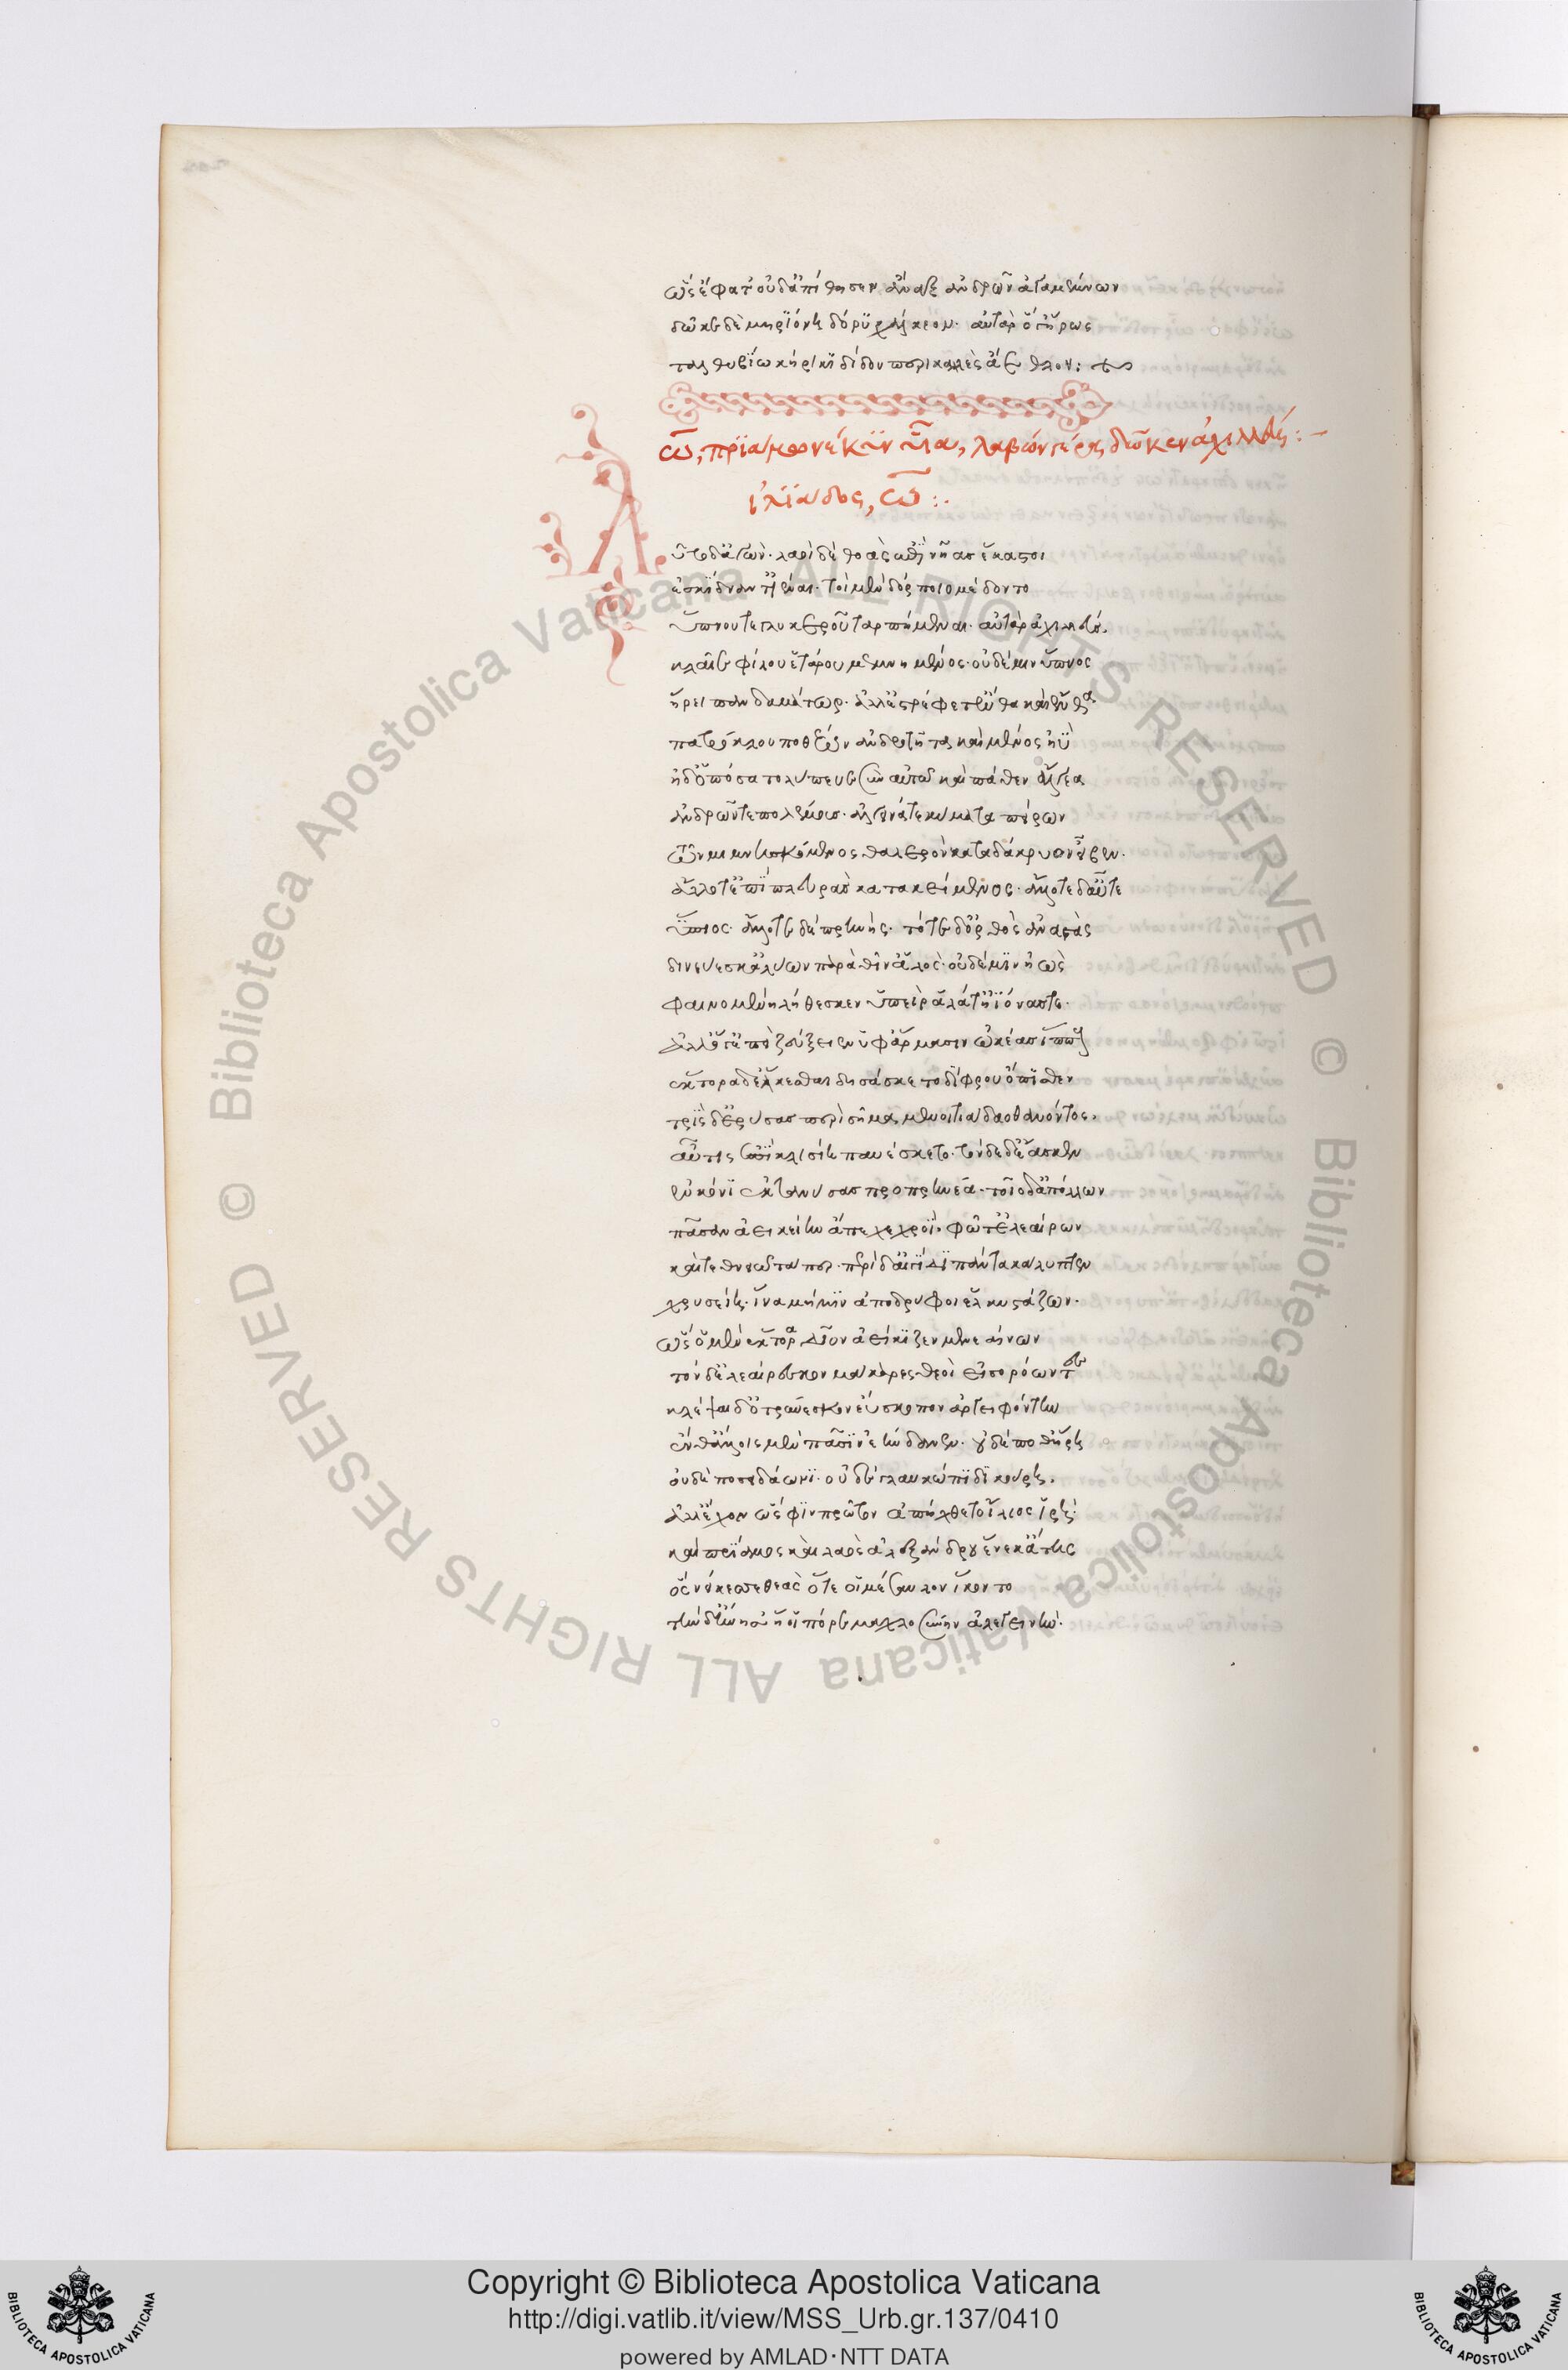 ὣς ἔφατ' οὐδ' ἀπίθησεν ἄναξ ἀνδρῶν ἀγαμέμνων
δῶκε δὲ μηριόνη δόρυ χάλκεον· αὐτὰρ ὅ γ' ἥρως
ταλθυβίω κήρικι δίδου περικαλλὲς ἄεθλον :
ω, πρίαμος νέκυν υἷα, λαβὼν γέρα, δῶκεν ἀχιλλεύς :
ἰλιάδος, ω :
Λῦτο δ' ἀγών· λαοὶ δὲ θοὰς ἐπὶ νῆας ἕκαστοι
ἐσκίδναντ' ἰέναι· τοὶ μὲν δόρποιο μέδοντο
ὕπνου τε γλυκεροῦ ταρπήμεναι· αὐτὰρ ἀχιλλεύς
κλαῖε φίλου ἑτάρου μεμνημένος· οὐδέ μιν ὕπνος
ἥρει πανδαμάτωρ· ἀλλ' ἐστρέφετ' ἔνθα καὶ ἔνθα
πατρόκλου ποθέων ἀνδροτῆτα καὶ μένος ἠῢ
ἠδ' ὁπόσα τολύπευε σὺν αὐτῶ καὶ πάθεν ἄλγεα
ἀνδρῶν τε πολέμους· ἀλεγεινά τε κύματα πείρων
τῶν μιμνησκόμενος θαλερὸν κατα δάκρυον εἶβεν.
ἄλλοτ' ἐπὶ πλευρὰς κατακείμενος· ἄλλοτε δ' αὖτε
ὕπτιος· ἄλλοτε δὲ πρηνής· τότε δ' ὀρθὸς ἀναστὰς
δινεύεσκ' ἀλύων παρὰ θῖν' ἁλὸς· οὐδέ μιν ἠὼς
φαινομένη λήθεσκεν ὑπεὶρ ἅλα τ' ἠϊόνας τε.
ἀλλ' ὅ γ' ἐπεὶ ζεύξειεν ὑφ' ἅρμασιν ὠκέας ἵππους
ἕκτορα δ' ἕλκεσθαι δησάσκετο δίφρου ὄπισθεν
τρὶς δ' ἐρύσας περὶ σῆμα μενοιτιάδαο θανόντος.
αὖτις ἐνὶ κλισίη παυέσκετο· τόνδε δ' ἔασκεν
ἐν κόνι ἐκτανύσας προπρηνέα· τοῖο δ' ἀπόλλων
πᾶσαν ἀεικείην ἄπεχε χροΐ· φῶτ' ἐλεαίρων
καὶ τεθνηῶτα περ· περὶ δ' αἰγίδι πάντα καλύπτεν
χρυσείη· ἵνα μή μιν ἀποδρύφοι ἑλκυστάζων.
ὣς ὃ μὲν ἕκτορα δῖον ἀείκιζεν μενεαίνων
τὸν δ' ἐλεαίρεσκον μάκαρες θεοὶ εἰσορόωντες
κλέψαι δ' ὀτρύνεσκον ἐΰσκοπον ἀργειφόντην
ἔνθ' ἄλλοις μὲν πᾶσιν ἑήνδανεν· οὐδέ ποθ' ἥρη
οὐδὲ ποσειδάωνι· οὐδὲ γλαυκώπιδι κούρη.
ἀλλ' ἔχον ὥς σφιν πρῶτον ἀπήχθετο ἴλιος ἱρή
καὶ πρίαμος καὶ λαὸς ἀλεξάνδρου ἕνεκ' ἄτης
ὃς νείκεσσε θεὰς ὅτε οἱ μέσσαυλον ἵκοντο
τὴν δ' ᾔνησ' ἥ οἱ πόρε μαχλοσύνην ἀλεγεινήν.